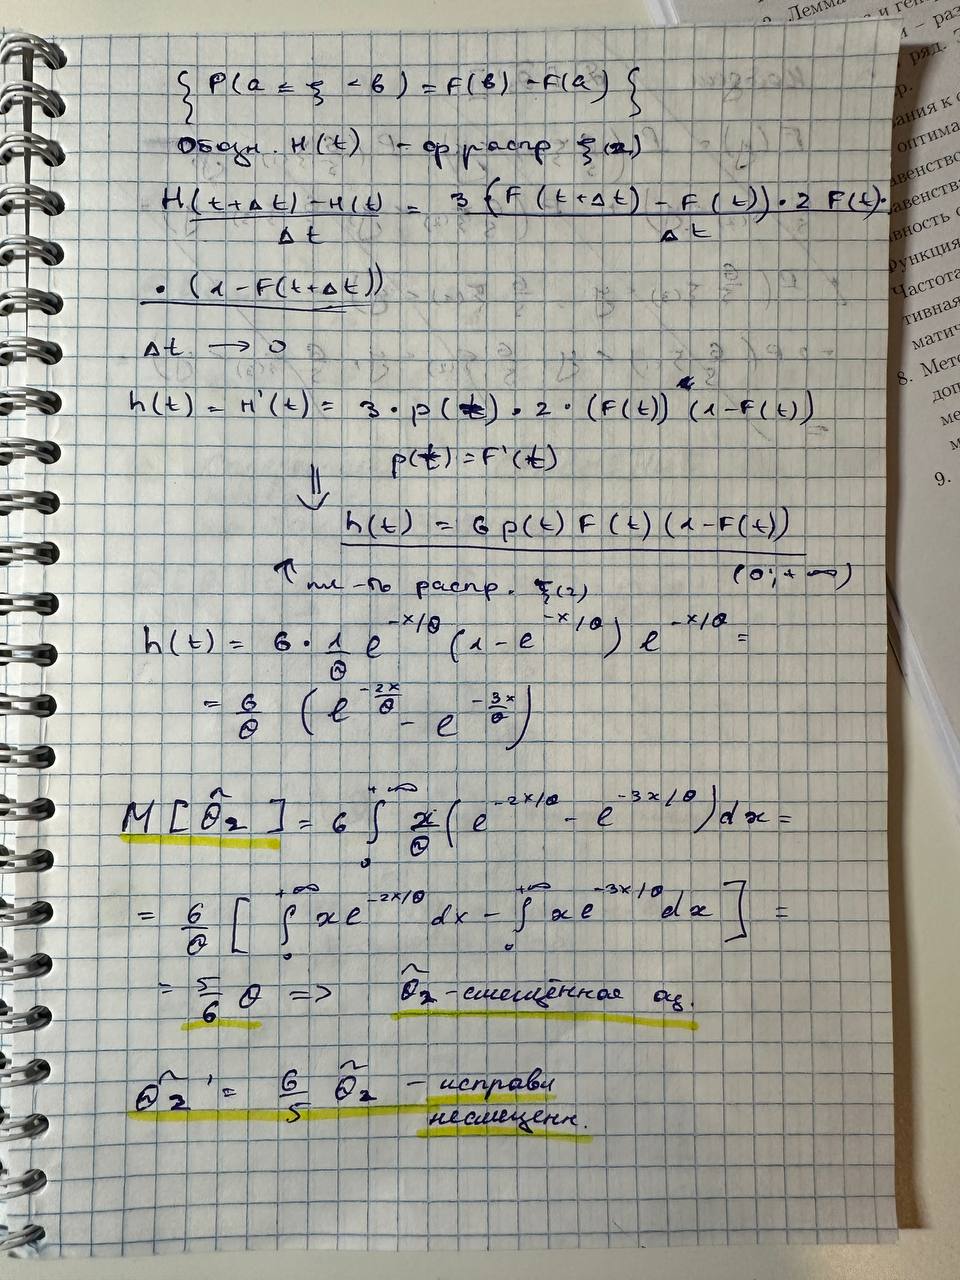 { P(a ≤ ξ < b) = F(b) - F(a) }
Обозн. H(t) - ф распр ξ(2)
H(t+Δt) - H(t) / Δt = 3 (F(t+Δt) - F(t)) · 2 F(t) · / Δt
· (1 - F(t+Δt))
Δt → 0
h(t) = H'(t) = 3 · p(t) · 2 · (F(t)) (1 - F(t))
p(t) = F'(t)
⇓
h(t) = 6 p(t) F(t) (1 - F(t))
↑ пл-ть распр. ξ(2) (0; +∞)
h(t) = 6 · 1/θ e^{-x/θ} (1 - e^{-x/θ}) e^{-x/θ} =
= 6/θ (e^{-2x/θ} - e^{-3x/θ})
M[θ̃₂] = 6 ∫₀^{+∞} x/θ (e^{-2x/θ} - e^{-3x/θ}) dx =
= 6/θ [ ∫₀^{+∞} x e^{-2x/θ} dx - ∫₀^{+∞} x e^{-3x/θ} dx ] =
= 5/6 θ => θ̃₂ - смещённая оц.
θ̃₂' = 6/5 θ̃₂ - исправл
несмещенн.
Лемма
и ген
– раз
ряд.
р.
ания к
оптима
авенство
авенства
вность
Функция
Частота
тивная
матич
8. Мето
доп
ме
м
9.